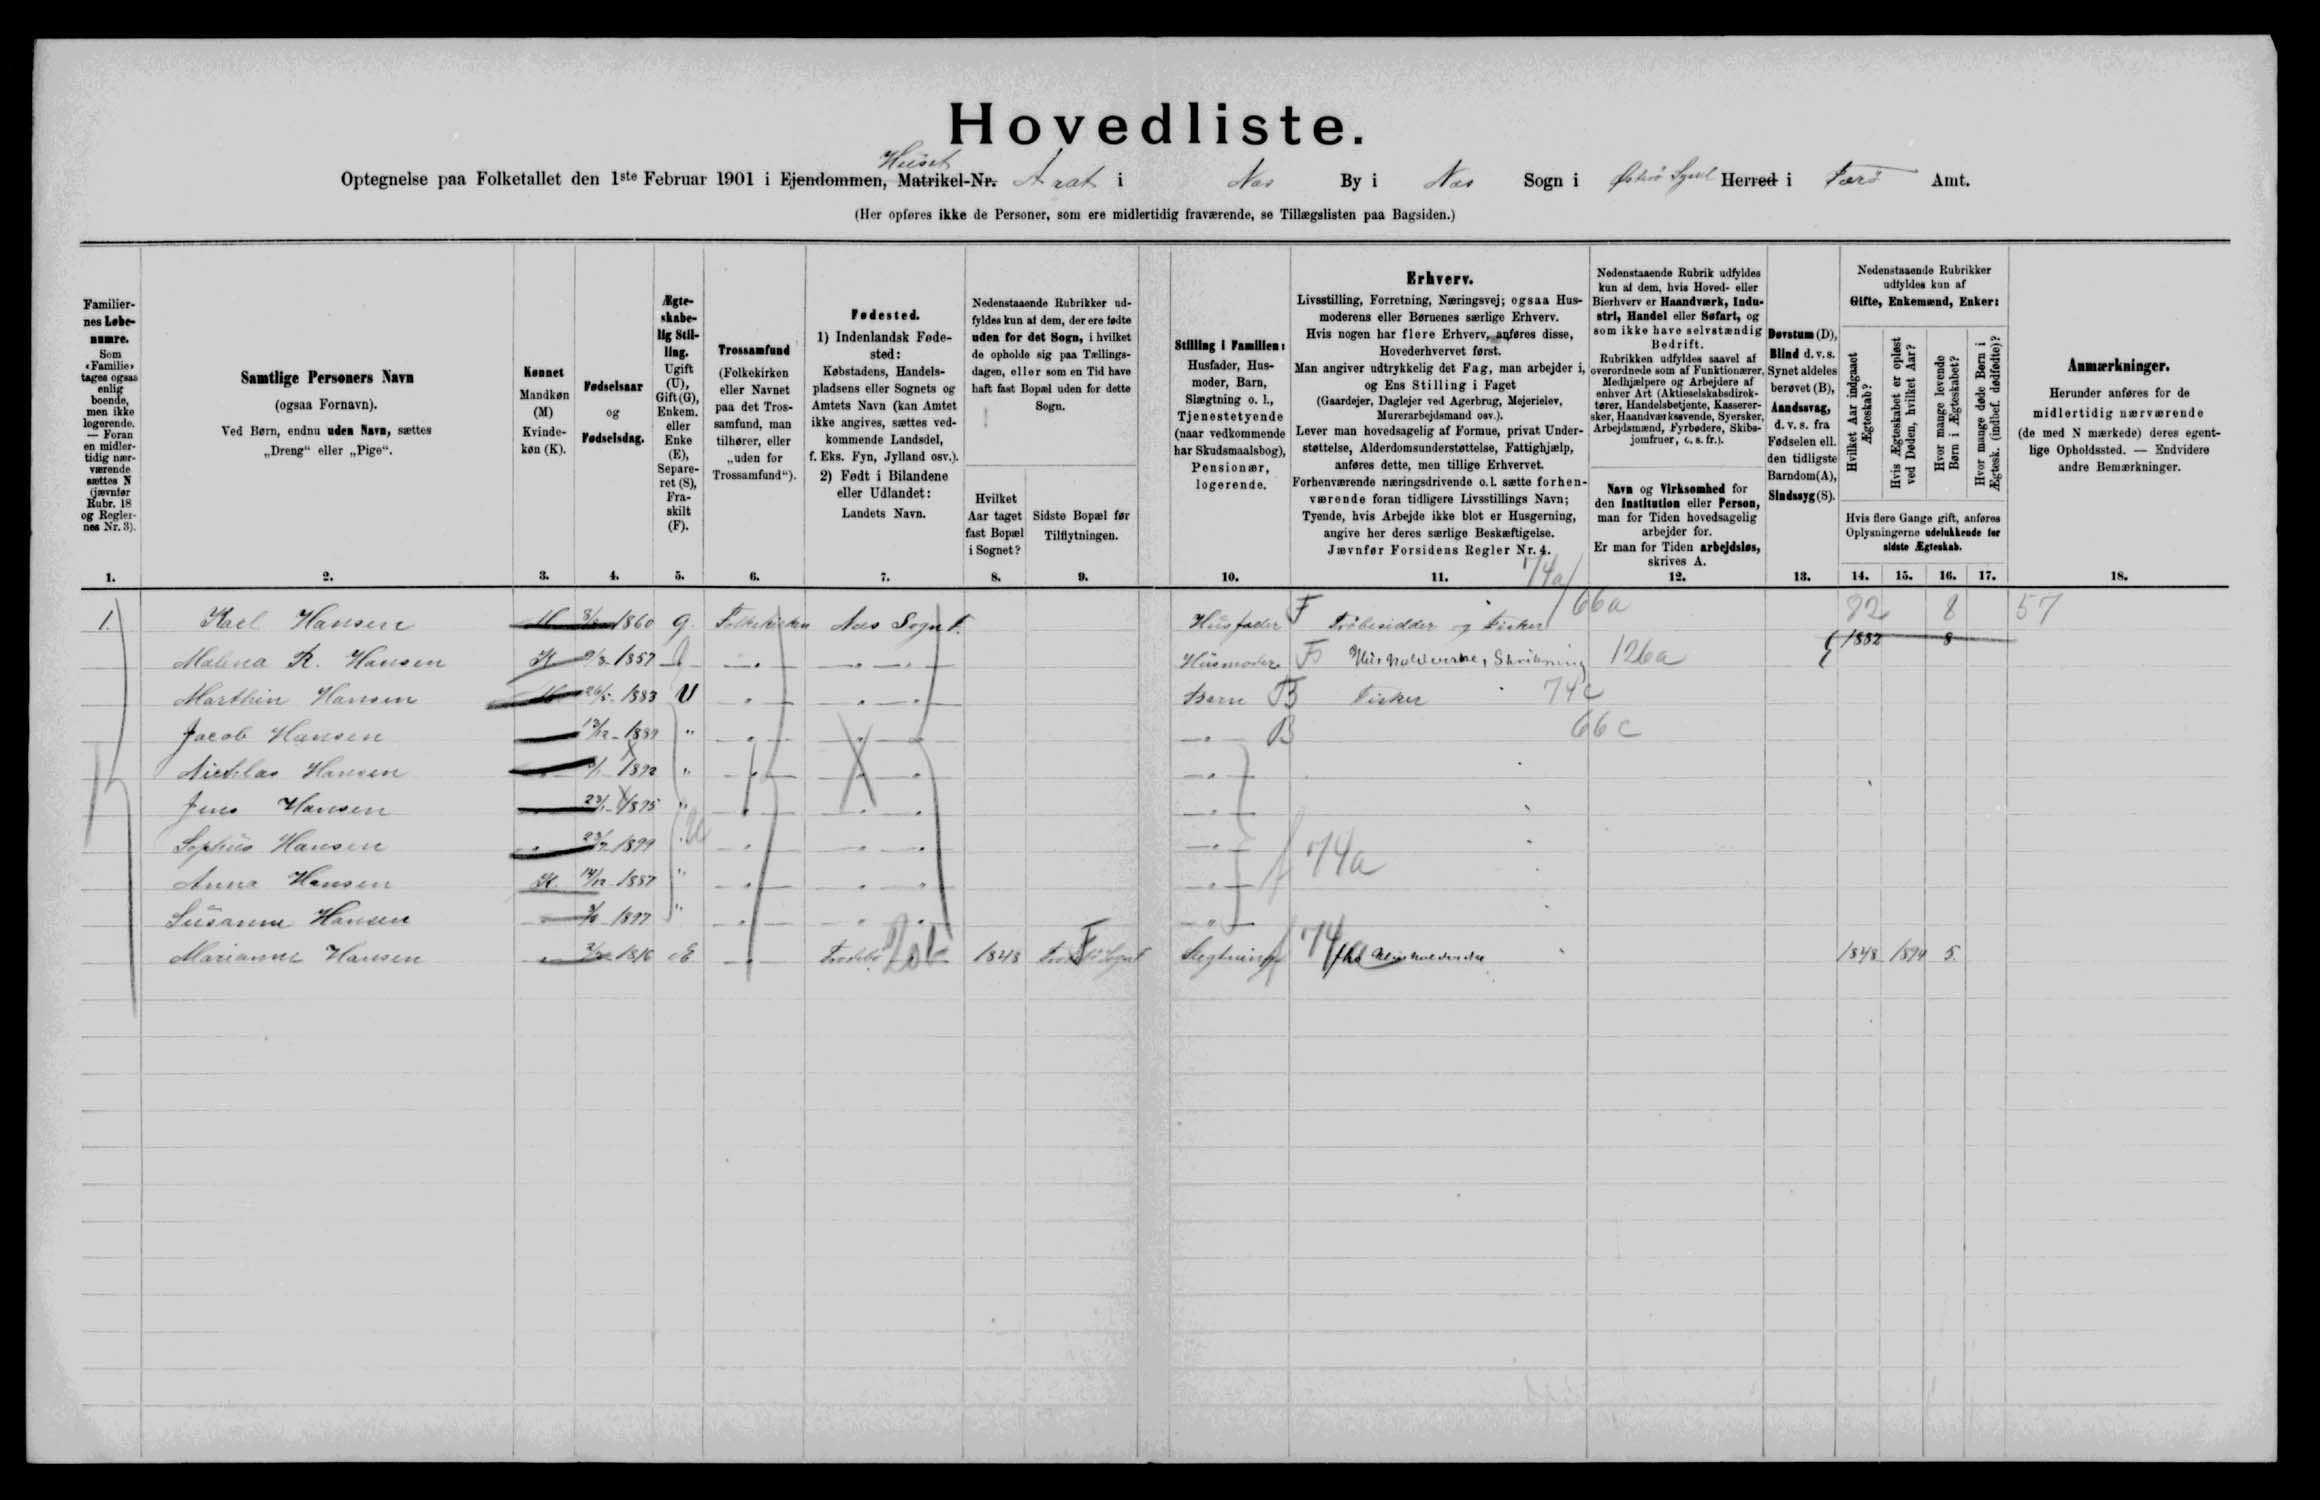 Hovedliste.
Optegnelse paa Folketallet den 1ste Februar 1901 i Ejendommen, Matrikel-Nr. Huset Árat i Næs By i Næs Sogn i Østerö Syssel Herred i Færö Amt.
(Her opføres ikke de Personer, som ere midlertidig fraværende, se Tillægslisten paa Bagsiden.)
Familiernes Løbenumre.
Som «Familie» tages ogsaa enlig boende, men ikke logerende. — Foran en midlertidig nærværende sættes N (jævnfør Rubr. 18 og Reglernes Nr. 3).
Samtlige Personers Navn
(ogsaa Fornavn).
Ved Børn, endnu uden Navn, sættes
„Dreng“ eller „Pige“.
Kønnet
Mandkøn (M)
Kvindekøn (K).
Fødselsaar
og
Fødselsdag.
Ægteskabelig Stilling.
Ugift (U), Gift (G), Enkem. eller Enke (E), Separeret (S), Fraskilt (F).
Trossamfund
(Folkekirken eller Navnet paa det Trossamfund, man tilhører, eller „uden for Trossamfund“).
Fødested.
1) Indenlandsk Fødested:
Købstadens, Handelspladsens eller Sognets og Amtets Navn (kan Amtet ikke angives, sættes vedkommende Landsdel, f. Eks. Fyn, Jylland osv.).
2) Født i Bilandene eller Udlandet:
Landets Navn.
Nedenstaaende Rubrikker udfyldes kun af dem, der ere fødte uden for det Sogn, i hvilket de opholde sig paa Tællingsdagen, eller som en Tid have haft fast Bopæl uden for dette Sogn.
Hvilket Aar taget fast Bopæl i Sognet?
Sidste Bopæl før Tilflytningen.
Stilling i Familien:
Husfader, Husmoder, Barn, Slægtning o. l., Tjenestetyende (naar vedkommende har Skudsmaalsbog), Pensionær, logerende.
Erhverv.
Livsstilling, Forretning, Næringsvej; ogsaa Husmoderens eller Børnenes særlige Erhverv.
Hvis nogen har flere Erhverv, anføres disse, Hovederhvervet først.
Man angiver udtrykkelig det Fag, man arbejder i, og Ens Stilling i Faget
(Gaardejer, Daglejer ved Agerbrug, Mejerielev, Murerarbejdsmand osv.).
Lever man hovedsagelig af Formue, privat Understøttelse, Alderdomsunderstøttelse, Fattighjælp, anføres dette, men tillige Erhvervet.
Forhenværende næringsdrivende o. l. sætte forhenværende foran tidligere Livsstillings Navn;
Tyende, hvis Arbejde ikke blot er Husgerning, angive her deres særlige Beskæftigelse.
Jævnfør Forsidens Regler Nr. 4.
Nedenstaaende Rubrik udfyldes kun af dem, hvis Hoved- eller Bierhverv er Haandværk, Industri, Handel eller Søfart, og som ikke have selvstændig Bedrift.
Rubrikken udfyldes saavel af overordnede som af Funktionærer, Medhjælpere og Arbejdere af enhver Art (Aktieselskabsdirektører, Handelsbetjente, Kasserersker, Haandværkssvende, Syersker, Arbejdsmænd, Fyrbødere, Skibsjomfruer, o. s. fr.).
Navn og Virksomhed for den Institution eller Person, man for Tiden hovedsagelig arbejder for.
Er man for Tiden arbejdsløs, skrives A.
Døvstum (D), Blind d. v. s. Synet aldeles berøvet (B), Aandssvag, d. v. s. fra Fødselen ell. den tidligste Barndom (A), Sindssyg (S).
Nedenstaaende Rubrikker udfyldes kun af
Gifte, Enkemænd, Enker:
Hvilket Aar indgaaet Ægteskab?
Hvis Ægteskabet er opløst ved Døden, hvilket Aar?
Hvor mange levende Børn i Ægteskabet?
Hvor mange døde Børn i Ægtesk. (indbef. dødfødte)?
Hvis flere Gange gift, anføres Oplysningerne udelukkende for sidste Ægteskab.
Anmærkninger.
Herunder anføres for de midlertidig nærværende (de med N mærkede) deres egentlige Opholdssted. — Endvidere andre Bemærkninger.
1. 2. 3. 4. 5. 6. 7. 8. 9. 10. 11. 12. 13. 14. 15. 16. 17. 18.
74a
1. Karl Hansen M 1860 G. Folkekirken Næs Sogn F. Husfader F Tróbesidder og Fisker 66a 82 8 57
Malena K. Hansen K 1857 " " Husmoder F Husholderske, Strikning 126a 1882 8
Marthin Hansen M 26/5 1883 U " " Barn B Fisker 74c
Jacob Hansen 1889 " " " " B 66c
Nicklas Hansen 1892 " " " "
Jens Hansen 1895 " " " "
Sophus Hansen 1899 " " " " 74a
Anna Hansen K. 1887 " " " "
Susanne Hansen 1897 " " " "
Marianne Hansen 1816 E " 1848 F Slegtning 74a 1848 1894 5.